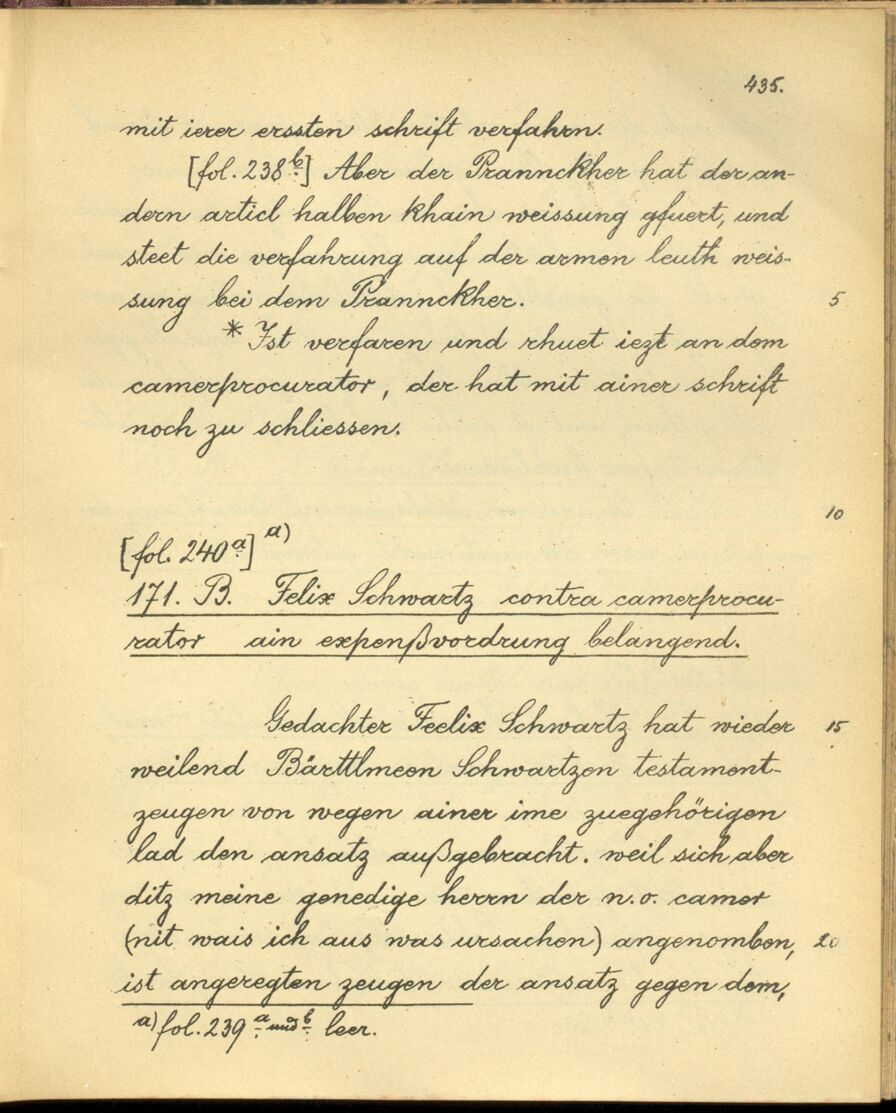 435.
mit ierer erssten schrift verfahrn.
[fol. 238 b] Aber der Prannckher hat der an-
dern articl halben khain weissung gfuert, und
steet die verfahrung auf der armen leuth weis-
sung bei dem Prannckher.
5
* Ist verfaren und rhuet iezt an dem
camerprocurator, der hat mit ainer schrift
noch zu schliessen.
10
[fol. 240 a] a)
171. B. Felix Schwartz contra camerprocu-
rator ain expenßvordrung belangend.
Gedachter Feelix Schwartz hat wieder
15
weilend Bärttlmeen Schwartzen testament-
zeugen von wegen ainer ime zuegehörigen
lad den ansatz außgebracht. weil sich aber
ditz meine genedige herrn der n. o. camer
(nit wais ich aus was ursachen) angenomben,
20
ist angeregten zeugen der ansatz gegen dem,
a) fol. 239 a und b leer.